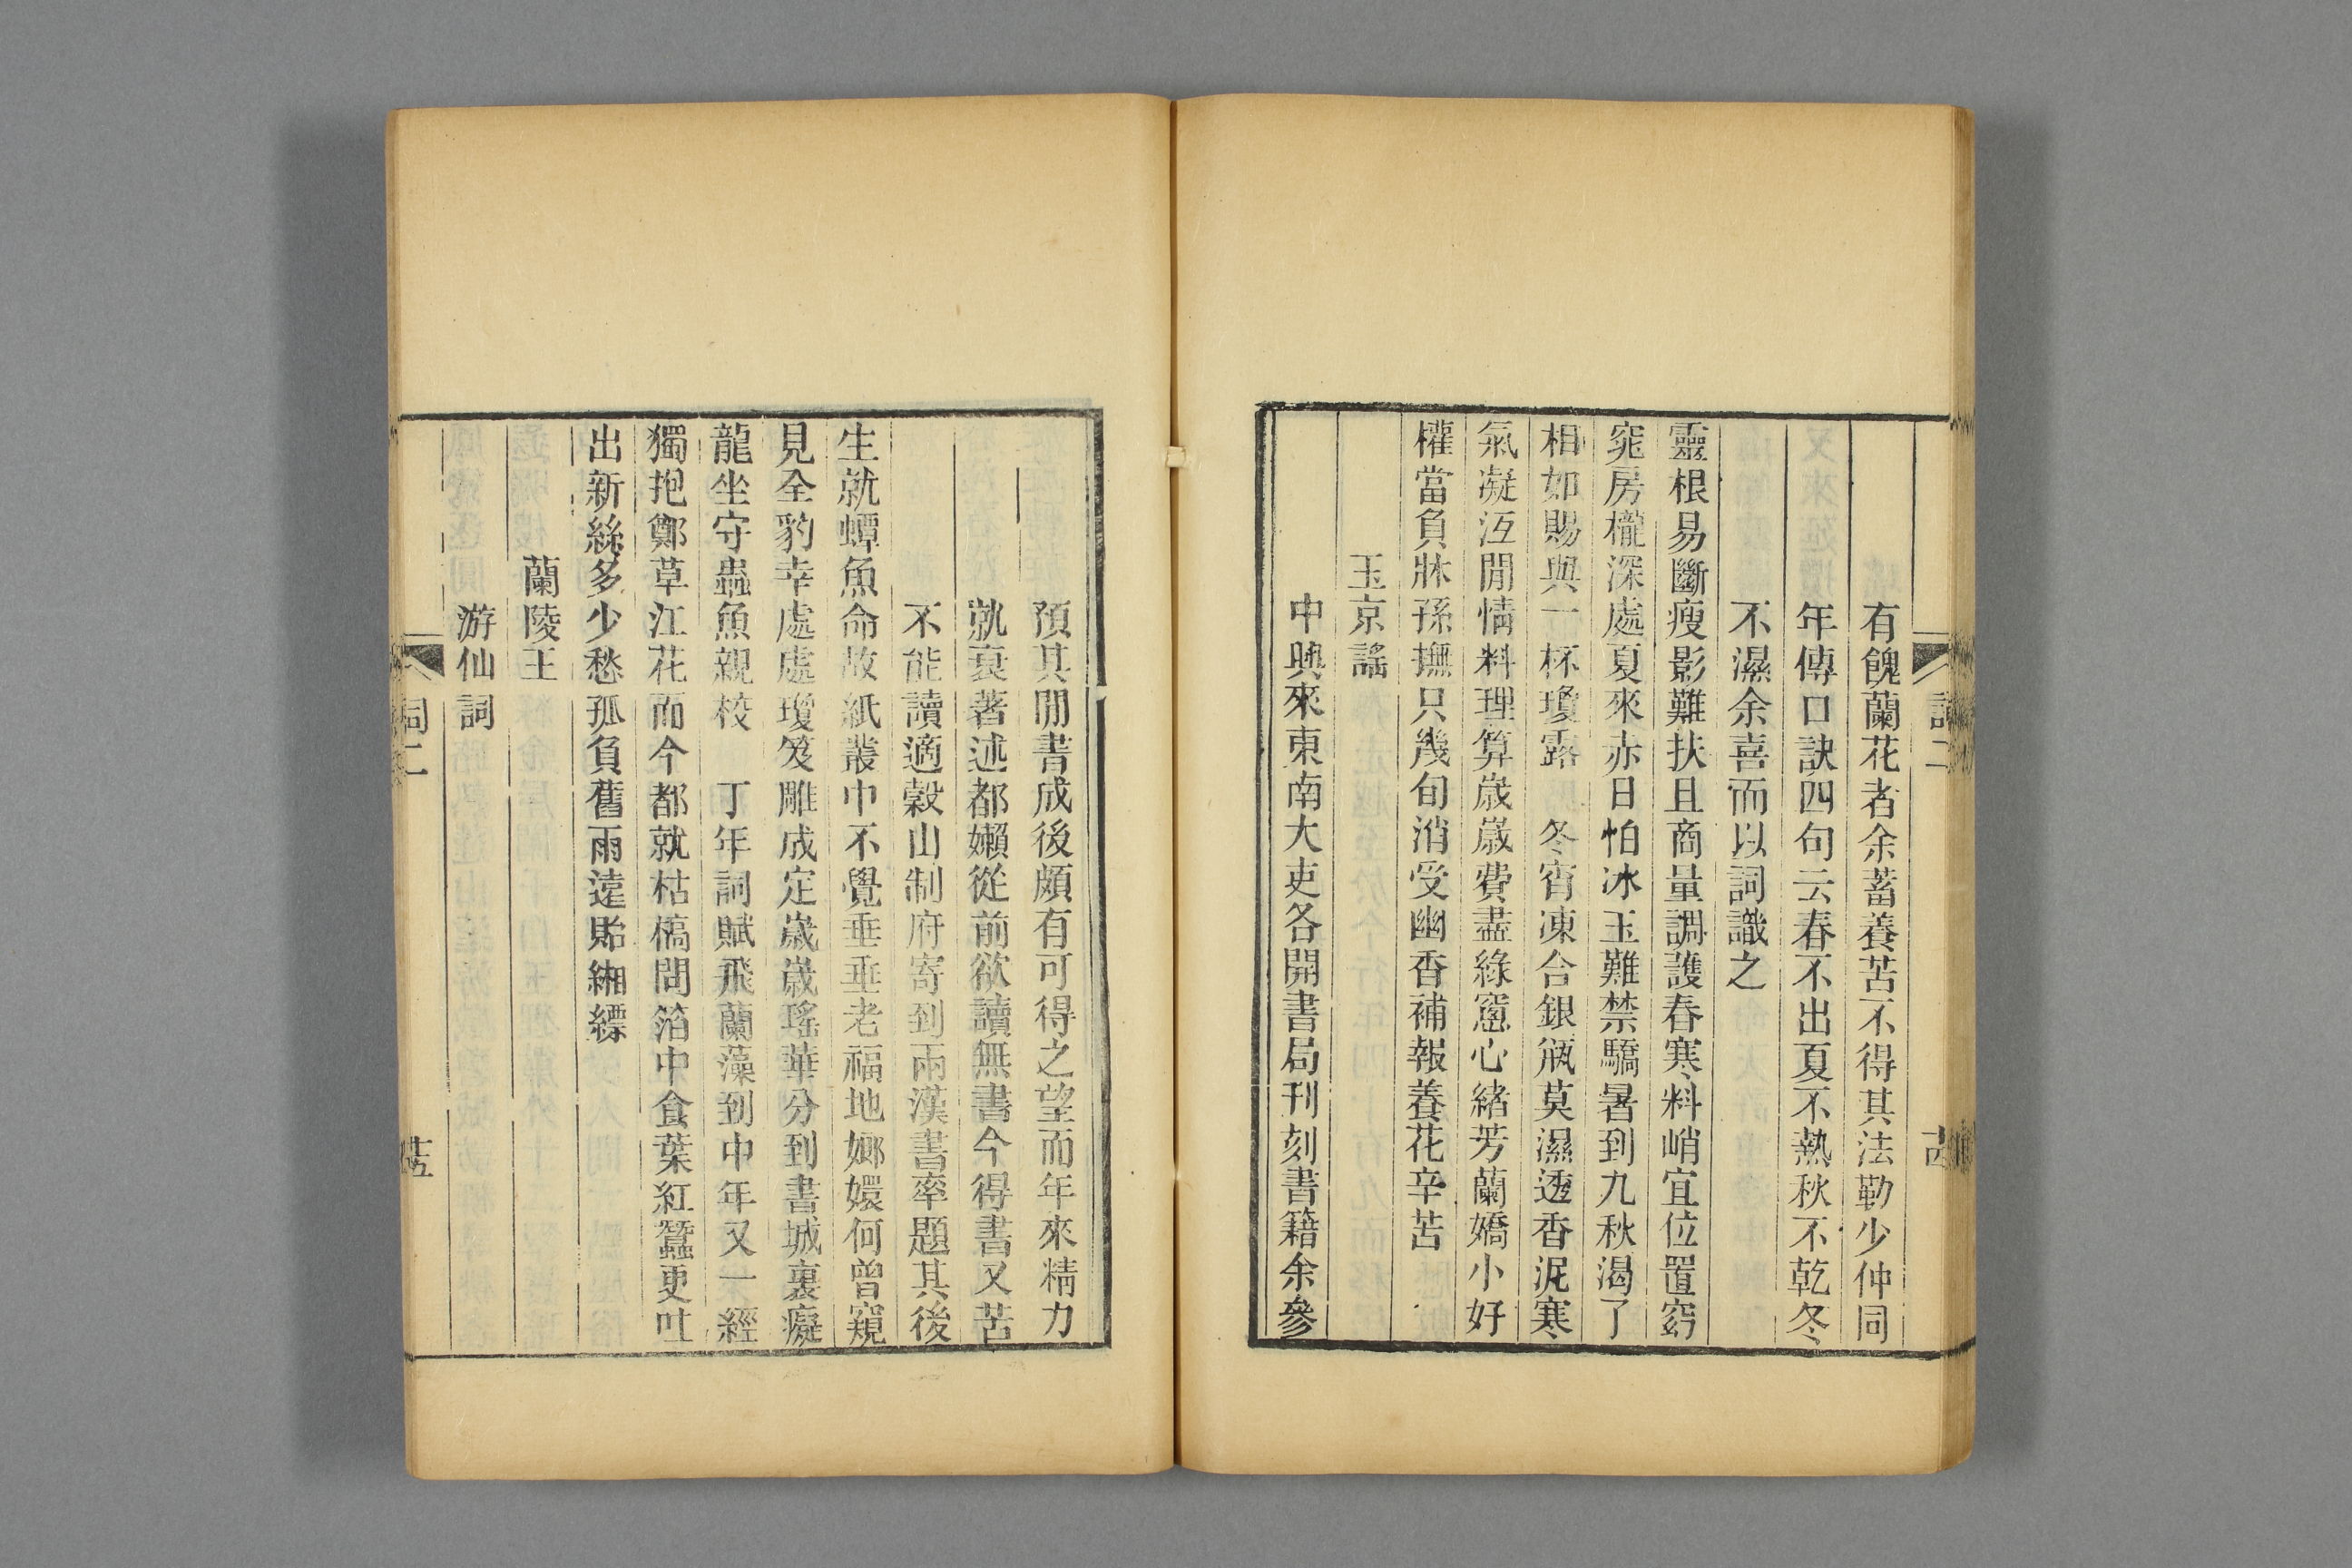 有餽蘭花者余蓄養苦不得其法勒少仲同
年傳口訣四句云春不出夏不熱秋不乾冬
不濕余喜而以詞識之
靈根易斷瘦影難扶且商量調護春寒料峭宜位置窈
窕房櫳深處夏來赤日怕冰玉難禁驕暑到九秋渴了
相如賜與一杯瓊露　冬宵凍合銀瓶莫濕透香泥寒
氣凝沍閒情料理算歲歲費盡綠窗心緒芳蘭嬌小好
權當負牀孫撫只幾旬消受幽香補報養花辛苦
玉京謠
中興來東南大吏各開書局刊刻書籍余參
預其閒書成後頗有可得之望而年來精力
孰衰著述都嬾從前欲讀無書今得書又苦
不能讀適穀山制府寄到兩漢書率題其後
生就蟫魚命故紙叢中不覺垂垂老福地嫏嬛何曾窺
見全豹幸處處瓊笈雕成定歲歲瑤華分到書城裏癡
龍坐守蟲魚親校　丁年詞賦飛蘭藻到中年又一經
獨抱鄭草江花而今都就枯槁問箔中食葉紅蠶更吐
出新絲多少愁孤負舊雨遠貽緗縹
蘭陵王
游仙詞
詞二